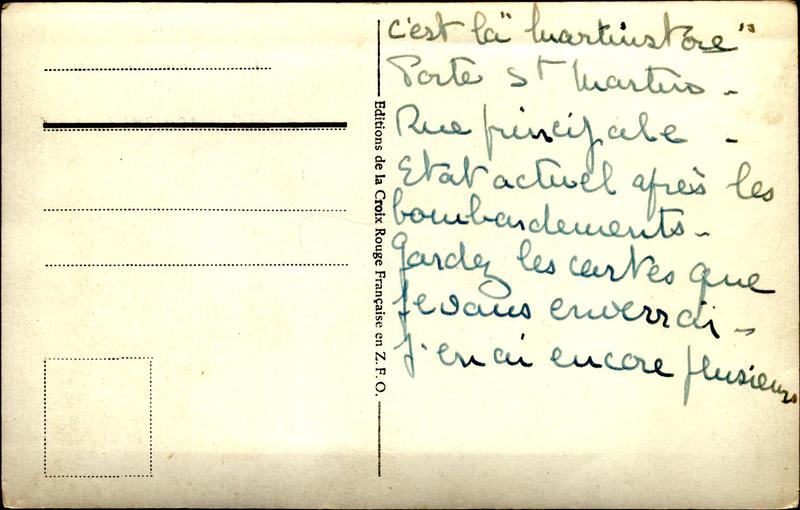 Editions de la Croix Rouge Française en Z. F. O.
c'est la "Martinstore"
Porte St Martin -
Rue principale -
Etat actuel après les
bombardements -
Gardez les cartes que
je vous enverrai -
J'en ai encore plusieurs